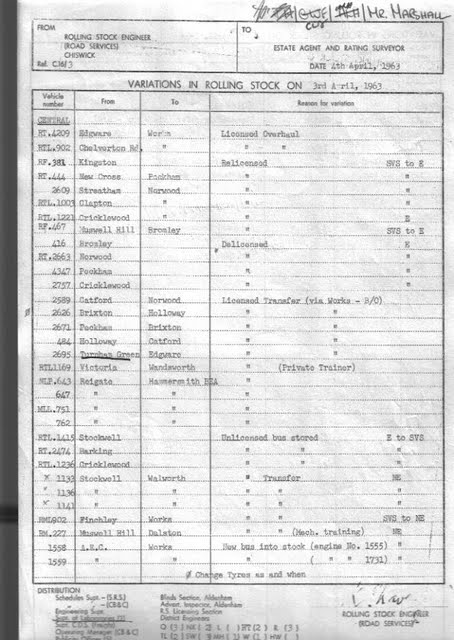 MR. MARSHALL
FROM
ROLLING STOCK ENGINEER
(ROAD SERVICES)
CHISWICK
Ref. C16/3
TO
ESTATE AGENT AND RATING SURVEYOR
DATE 4th April, 1963
VARIATIONS IN ROLLING STOCK ON 3rd April, 1963
Vehicle number From To Reason for variation
CENTRAL
RT.4209 Edgware Works Licensed Overhaul
RTL.902 Chelverton Rd. " " "
RF.381 Kingston Relicensed SVS to E
RT.444 New Cross Peckham " "
2609 Streatham Norwood " "
RTL.1003 Clapton " " "
RTL.1221 Cricklewood " E
RF.467 Muswell Hill Bromley " SVS to E
416 Bromley Delicensed E
RT.2663 Norwood " "
4347 Peckham " "
2757 Cricklewood " "
2589 Catford Norwood Licensed Transfer (via Works - B/O)
Ø 2626 Brixton Holloway " "
2671 Peckham Brixton " "
484 Holloway Catford " "
2695 Turnham Green Edgware " "
RTL1169 Victoria Wandsworth " (Private Trainer)
NLP.643 Reigate Hammersmith BEA "
647 " " "
MLL.751 " " "
762 " " "
RTL.1415 Stockwell Unlicensed bus stored E to SVS
RT.2474 Barking " "
RTL.1236 Cricklewood " "
× 1133 Stockwell Walworth " Transfer NE
× 1136 " " " " "
× 1141 " " " " "
RML902 Finchley Works " " SVS to NE
RM.227 Muswell Hill Dalston " " (Mech. training) NE
1558 A.E.C. Works New bus into stock (engine No. 1555) "
1559 " " ( " " 1731) "
Ø Change Tyres as and when
DISTRIBUTION
Schedules Supt. - (S.R.S.)
- (CB&C)
Engineering Supt.
Supt. of Laboratories (3)
Supt. C.D.S. (Freight)
Operating Manager (CB&C)
Blinds Section, Aldenham
Advert. Inspector, Aldenham
R.S. Licensing Section
District Engineers
ROLLING STOCK ENGINEER
(ROAD SERVICES)